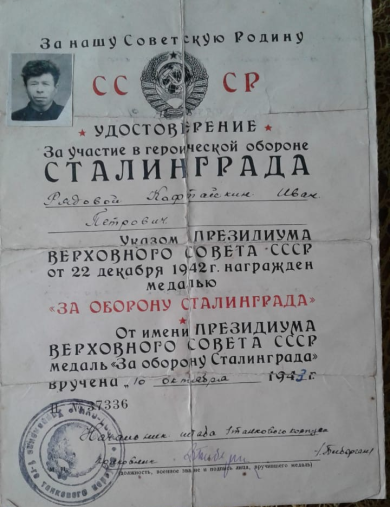 За нашу Советскую Родину
СС СР
УДОСТОВЕРЕНИЕ
За участие в героической обороне
СТАЛИНГРАДА
Рядовой Кафтайкин Иван
Петрович
Указом ПРЕЗИДИУМА
ВЕРХОВНОГО СОВЕТА СССР
от 22 декабря 1942 г. награжден
медалью
«ЗА ОБОРОНУ СТАЛИНГРАДА»
От имени ПРЕЗИДИУМА
ВЕРХОВНОГО СОВЕТА СССР
медаль «За оборону Сталинграда»
вручена „10 октября 1943 г.
7336
Начальник штаба 1 танкового корпуса
полковник
(должность, военное звание и подпись лица, вручившего медаль)